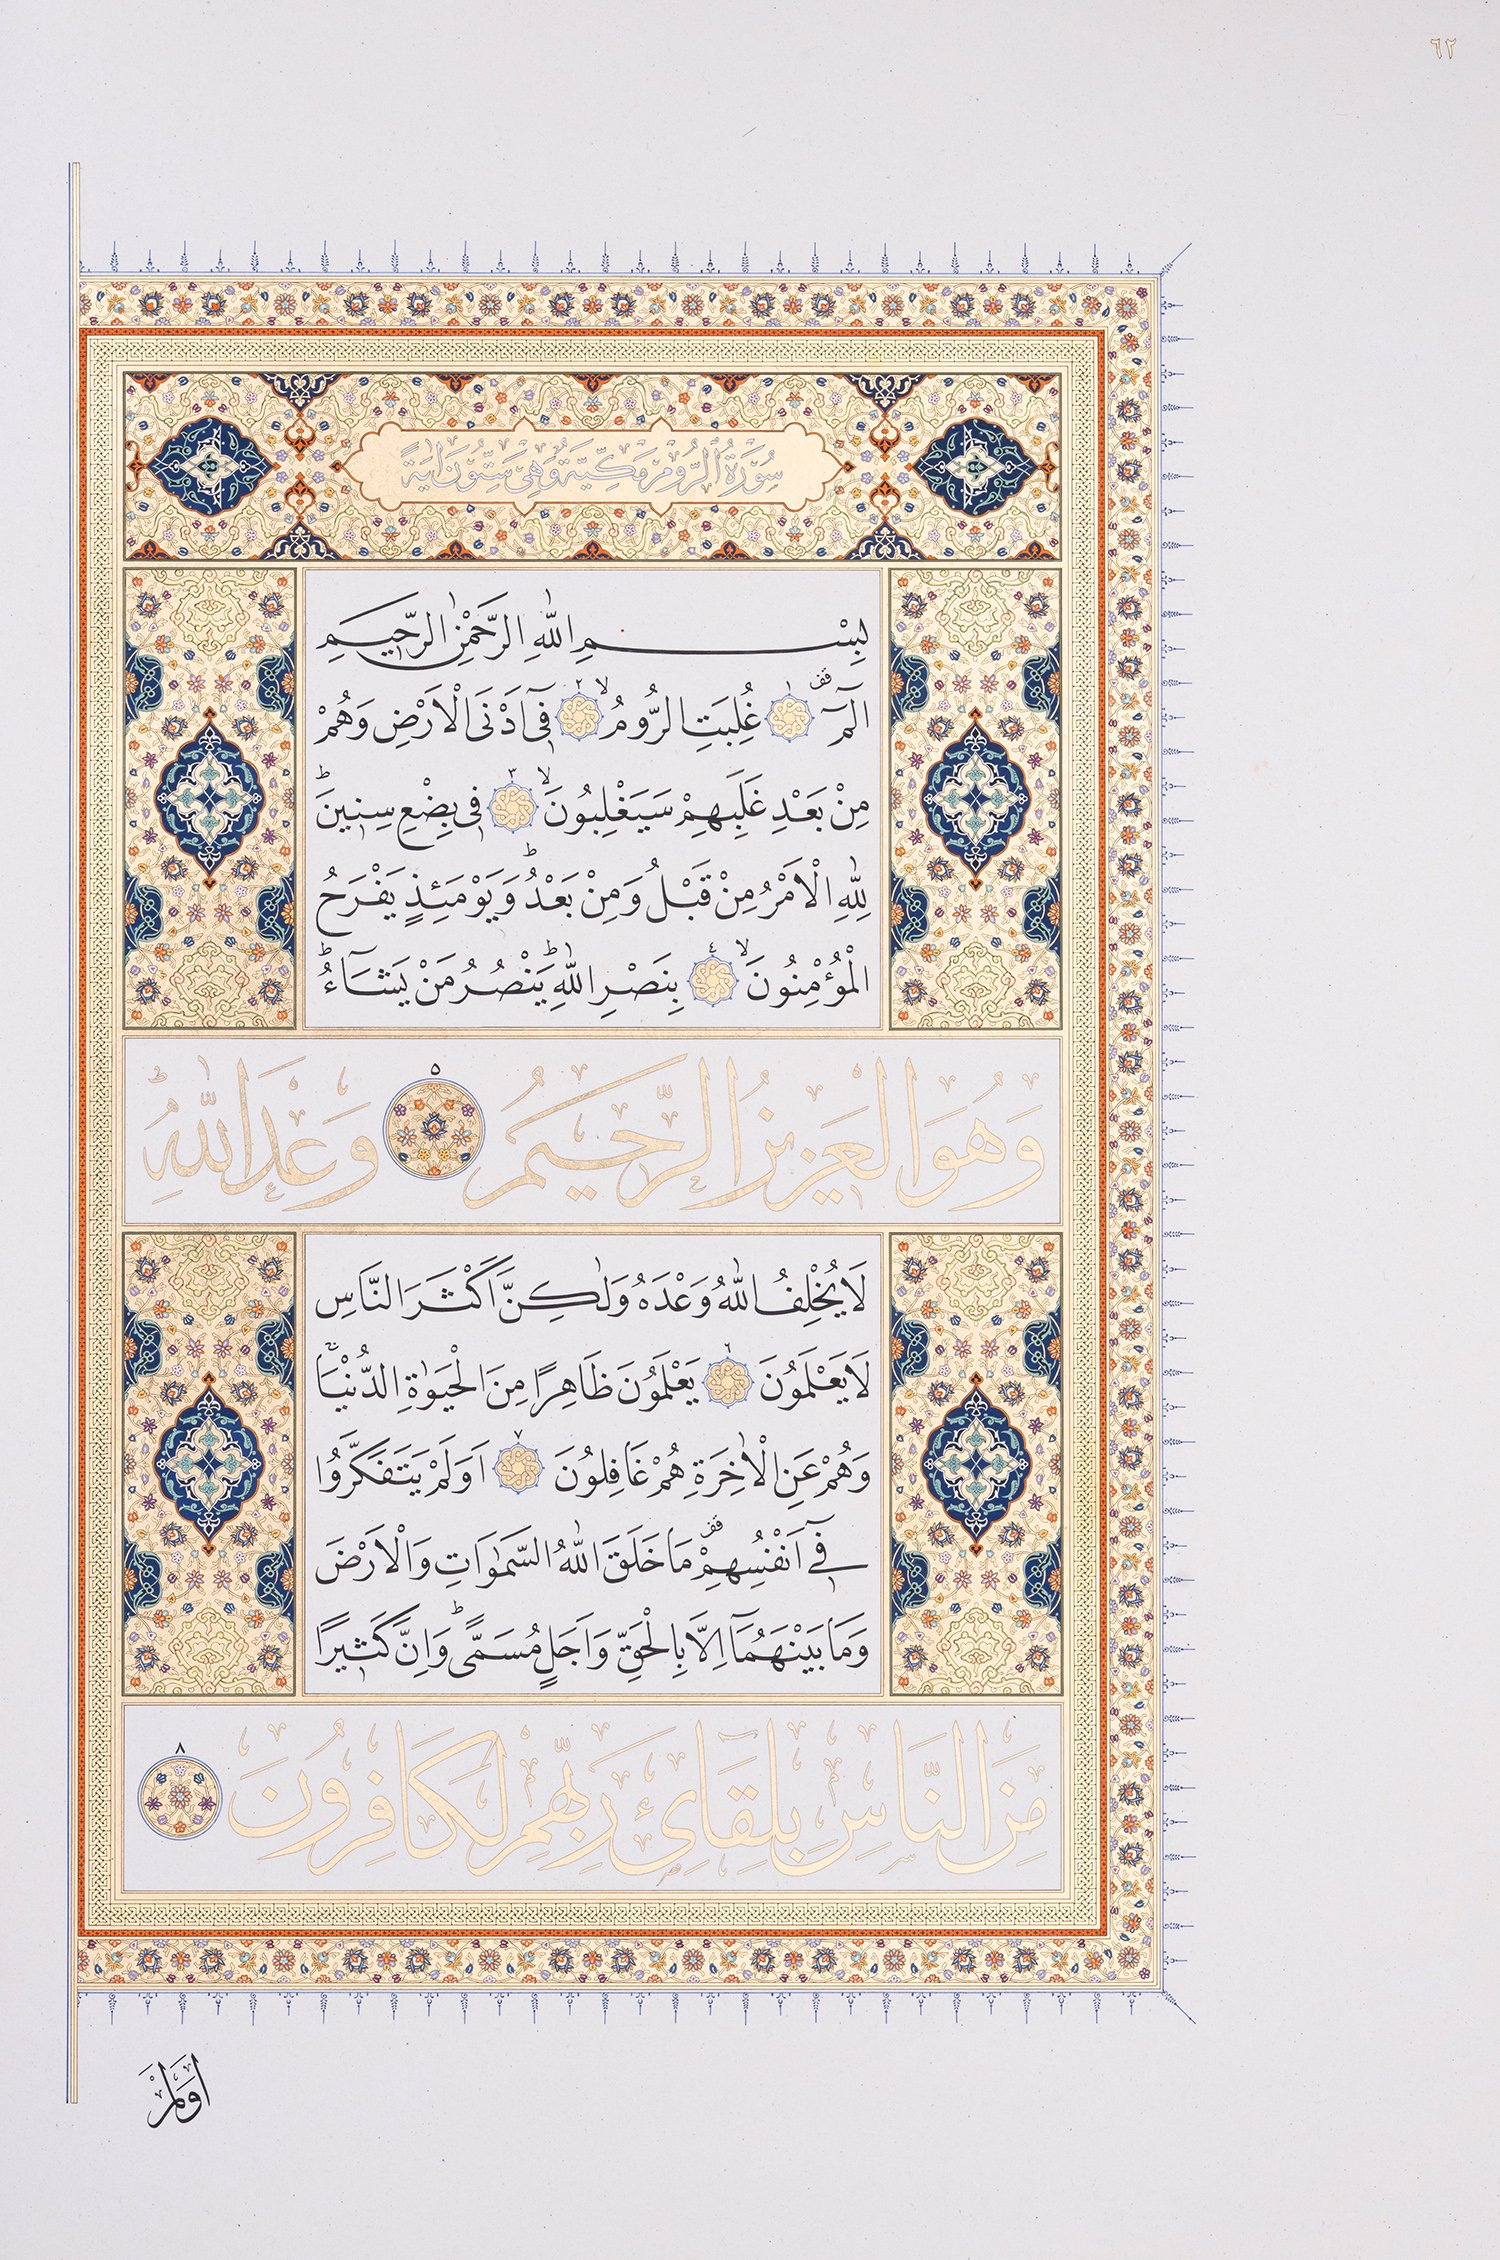 ٦٢
سُورَةُ الرُّومِ مَكِّيَّةٌ وَهِيَ سِتُّونَ اٰيَةً
بِسْمِ اللّٰهِ الرَّحْمٰنِ الرَّحِيمِ
الٓمٓ ۚ ١ غُلِبَتِ الرُّومُ ۙ ٢ فِٓى اَدْنَى الْاَرْضِ وَهُمْ
مِنْ بَعْدِ غَلَبِهِمْ سَيَغْلِبُونَ ۙ ٣ فِى بِضْعِ سِنِينَ ۜ
لِلّٰهِ الْاَمْرُ مِنْ قَبْلُ وَمِنْ بَعْدُ ۜ وَيَوْمَئِذٍ يَفْرَحُ
الْمُؤْمِنُونَ ۙ ٤ بِنَصْرِ اللّٰهِ ۜ يَنْصُرُ مَنْ يَشَٓاءُ ۜ
وَهُوَ الْعَزِيزُ الرَّحِيمُ ٥ وَعْدَ اللّٰهِ ۜ
لَا يُخْلِفُ اللّٰهُ وَعْدَهُ وَلٰكِنَّ اَكْثَرَ النَّاسِ
لَا يَعْلَمُونَ ٦ يَعْلَمُونَ ظَاهِرًا مِنَ الْحَيٰوةِ الدُّنْيَا ۚ
وَهُمْ عَنِ الْاٰخِرَةِ هُمْ غَافِلُونَ ٧ اَوَلَمْ يَتَفَكَّرُوا
فِٓى اَنْفُسِهِمْ مَا خَلَقَ اللّٰهُ السَّمٰوَاتِ وَالْاَرْضَ
وَمَا بَيْنَهُمَٓا اِلَّا بِالْحَقِّ وَاَجَلٍ مُسَمًّى ۜ وَاِنَّ كَثِيرًا
مِنَ النَّاسِ بِلِقَٓائِ رَبِّهِمْ لَكَافِرُونَ ٨
اَوَلَمْ